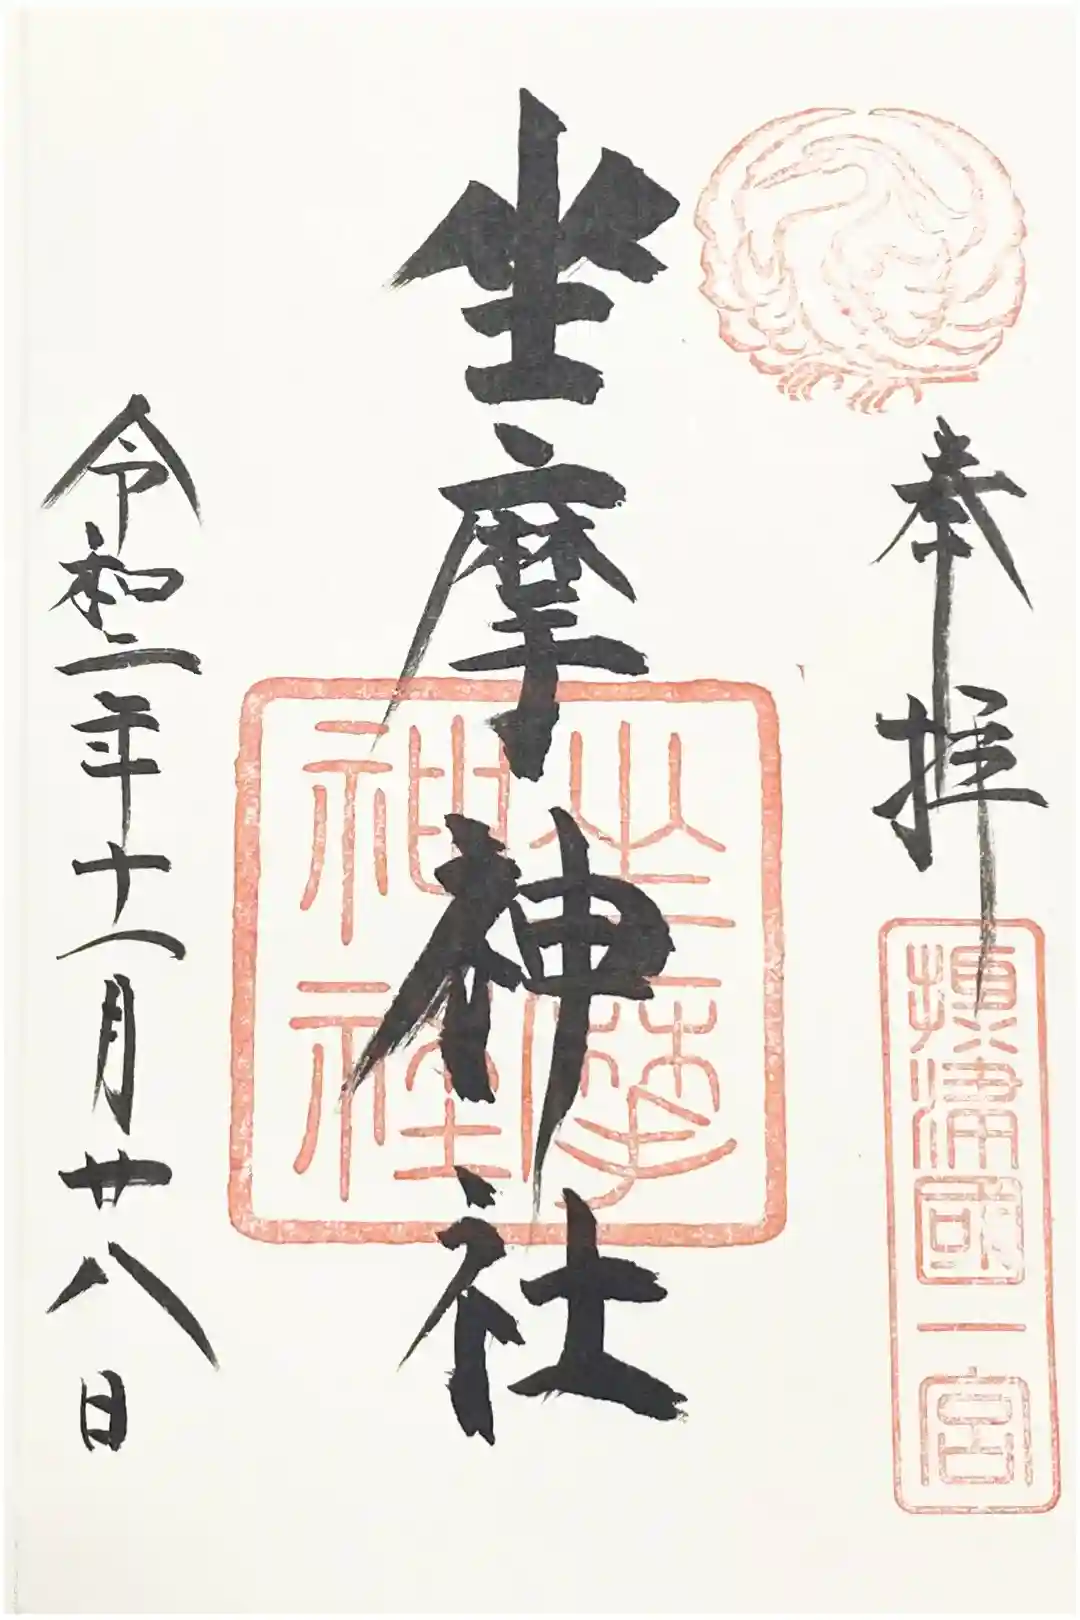 奉拝
摂津國一宮
坐摩神社
坐摩神社
令和二年十一月廿八日